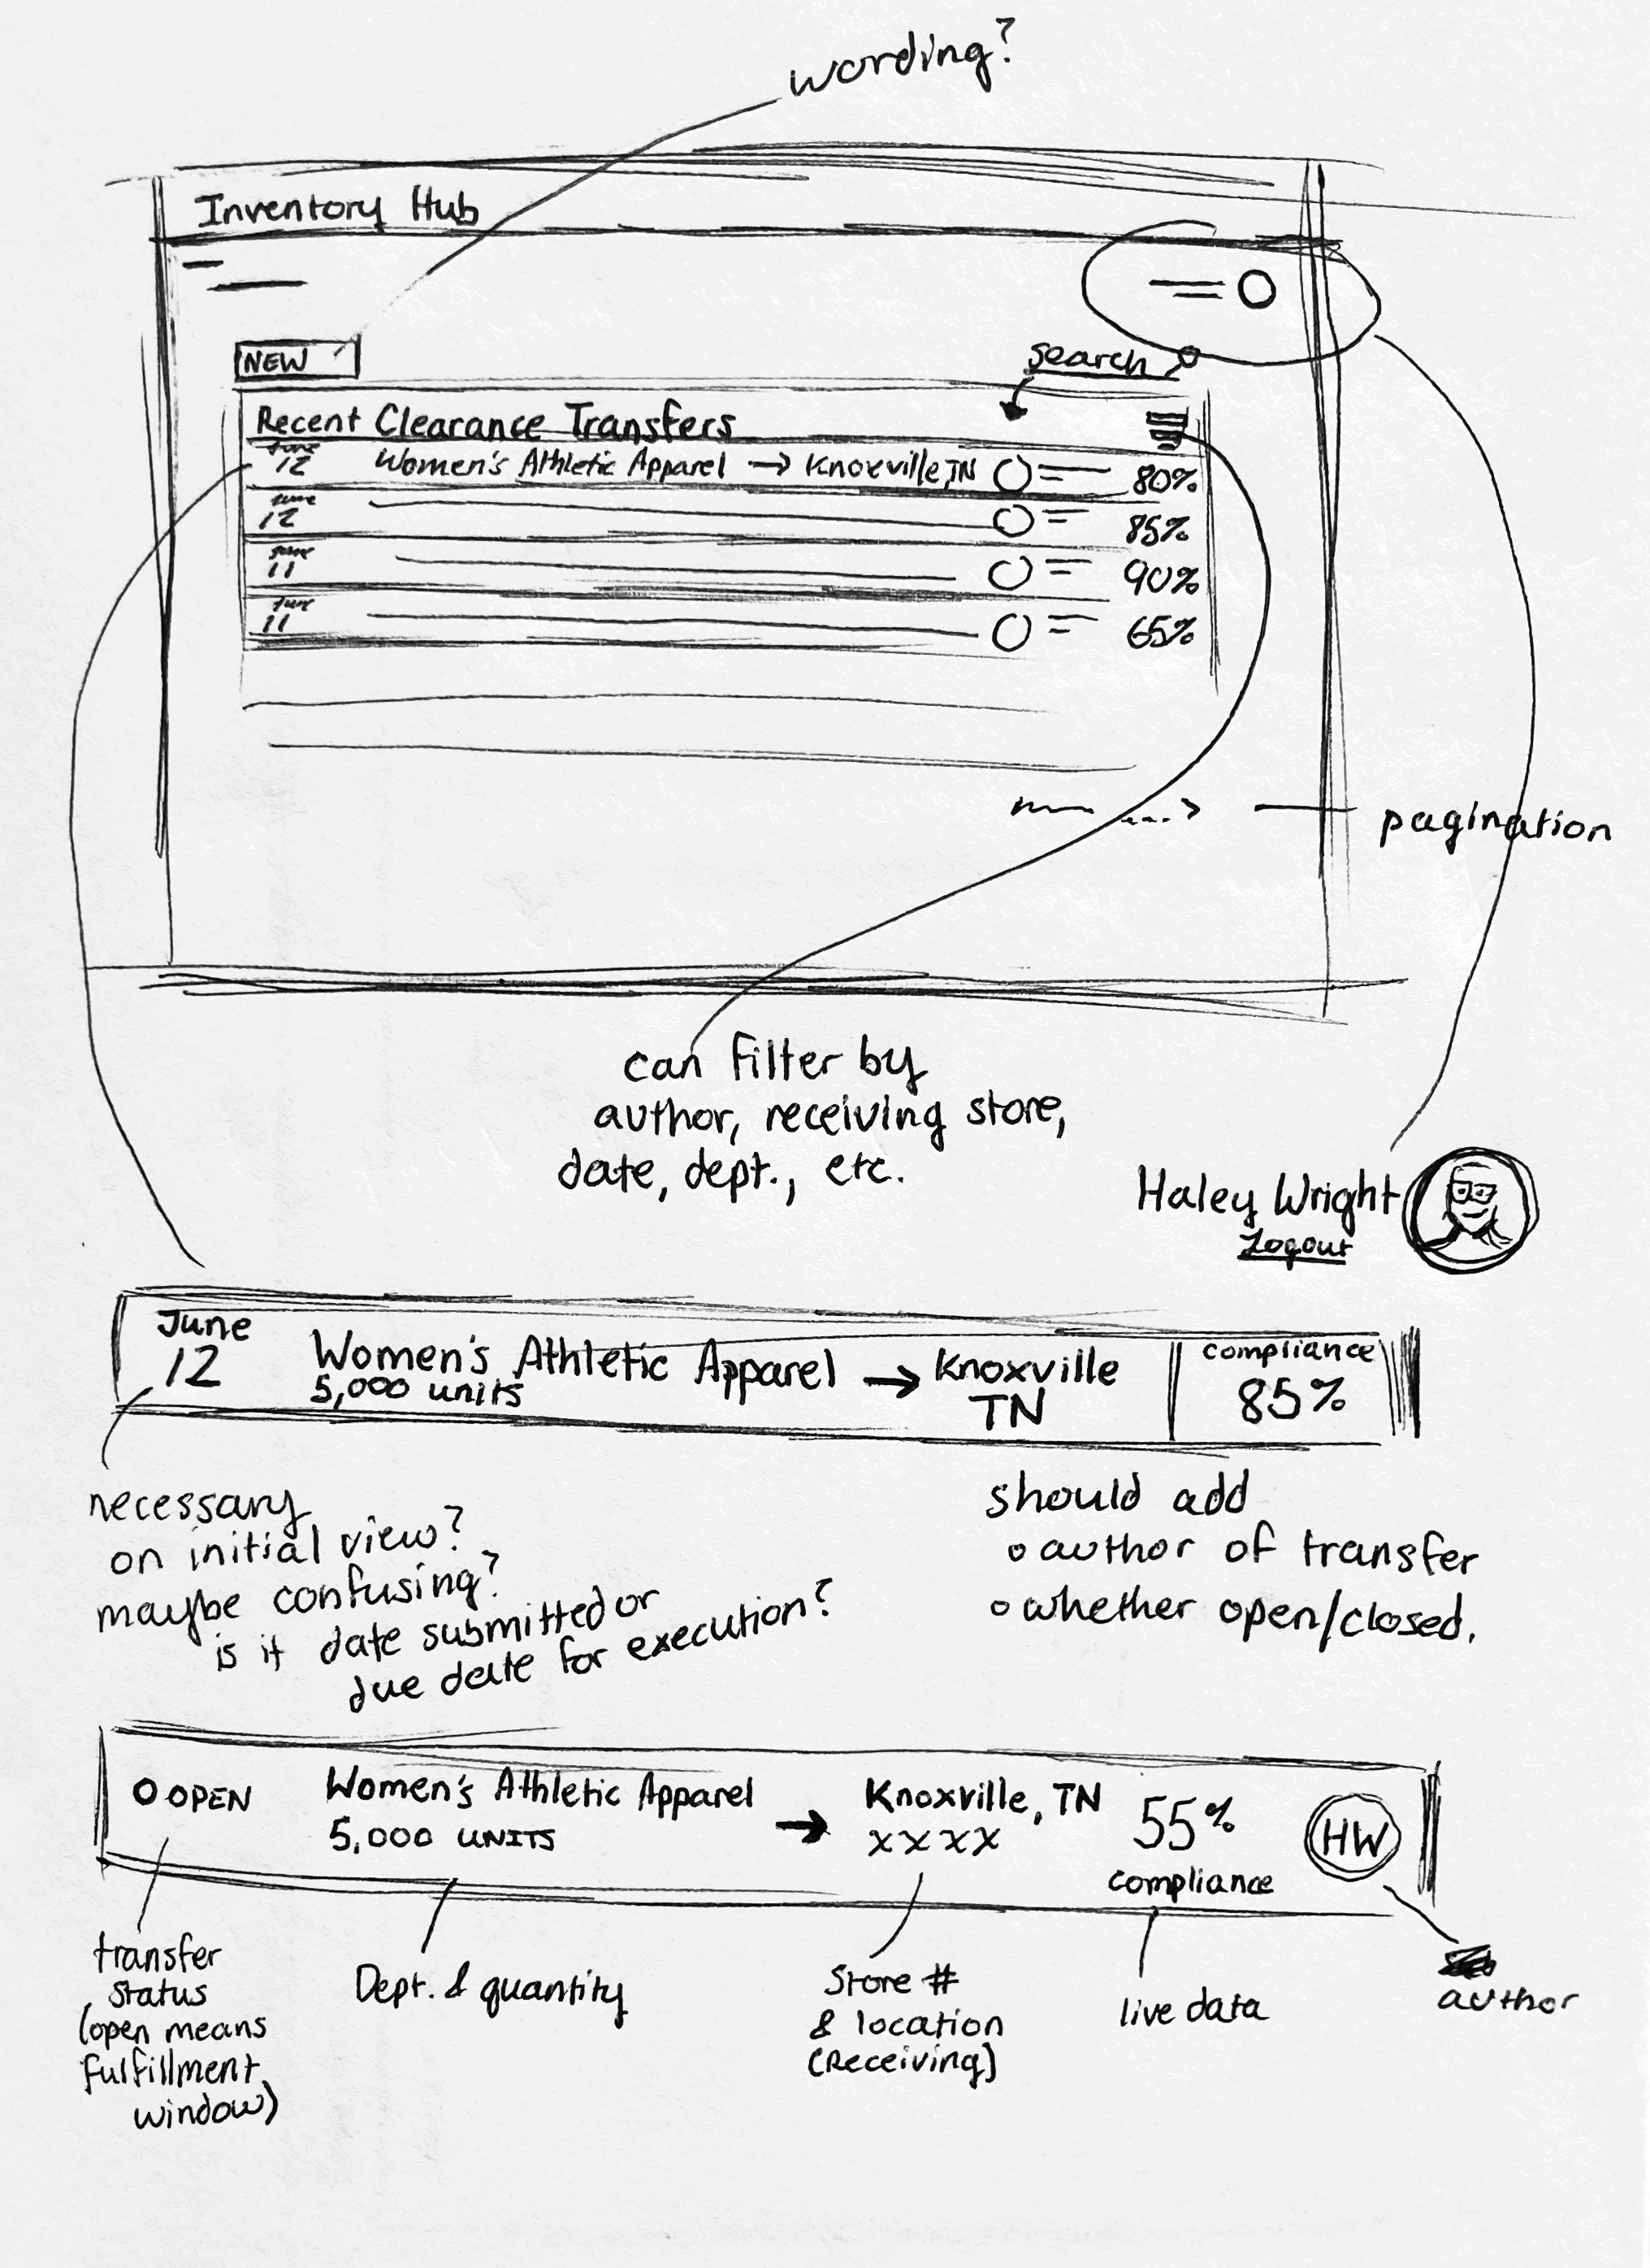 wording?
Inventory Hub
NEW
search
Recent Clearance Transfers
June
12
Women's Athletic Apparel → Knoxville, TN
80%
June
12
85%
June
11
90%
June
11
65%
pagination
can filter by
author, receiving store,
date, dept., etc.
Haley Wright
Logout
June
12
Women's Athletic Apparel → Knoxville
5,000 units
TN
compliance
85%
necessary
on initial view?
maybe confusing?
is it date submitted or
due date for execution?
should add
o author of transfer
o whether open/closed.
O OPEN
Women's Athletic Apparel
5,000 UNITS
→
Knoxville, TN
xxxx
55%
compliance
HW
transfer
status
(open means
fulfillment
window)
Dept. & quantity
Store #
& location
(Receiving)
live data
author